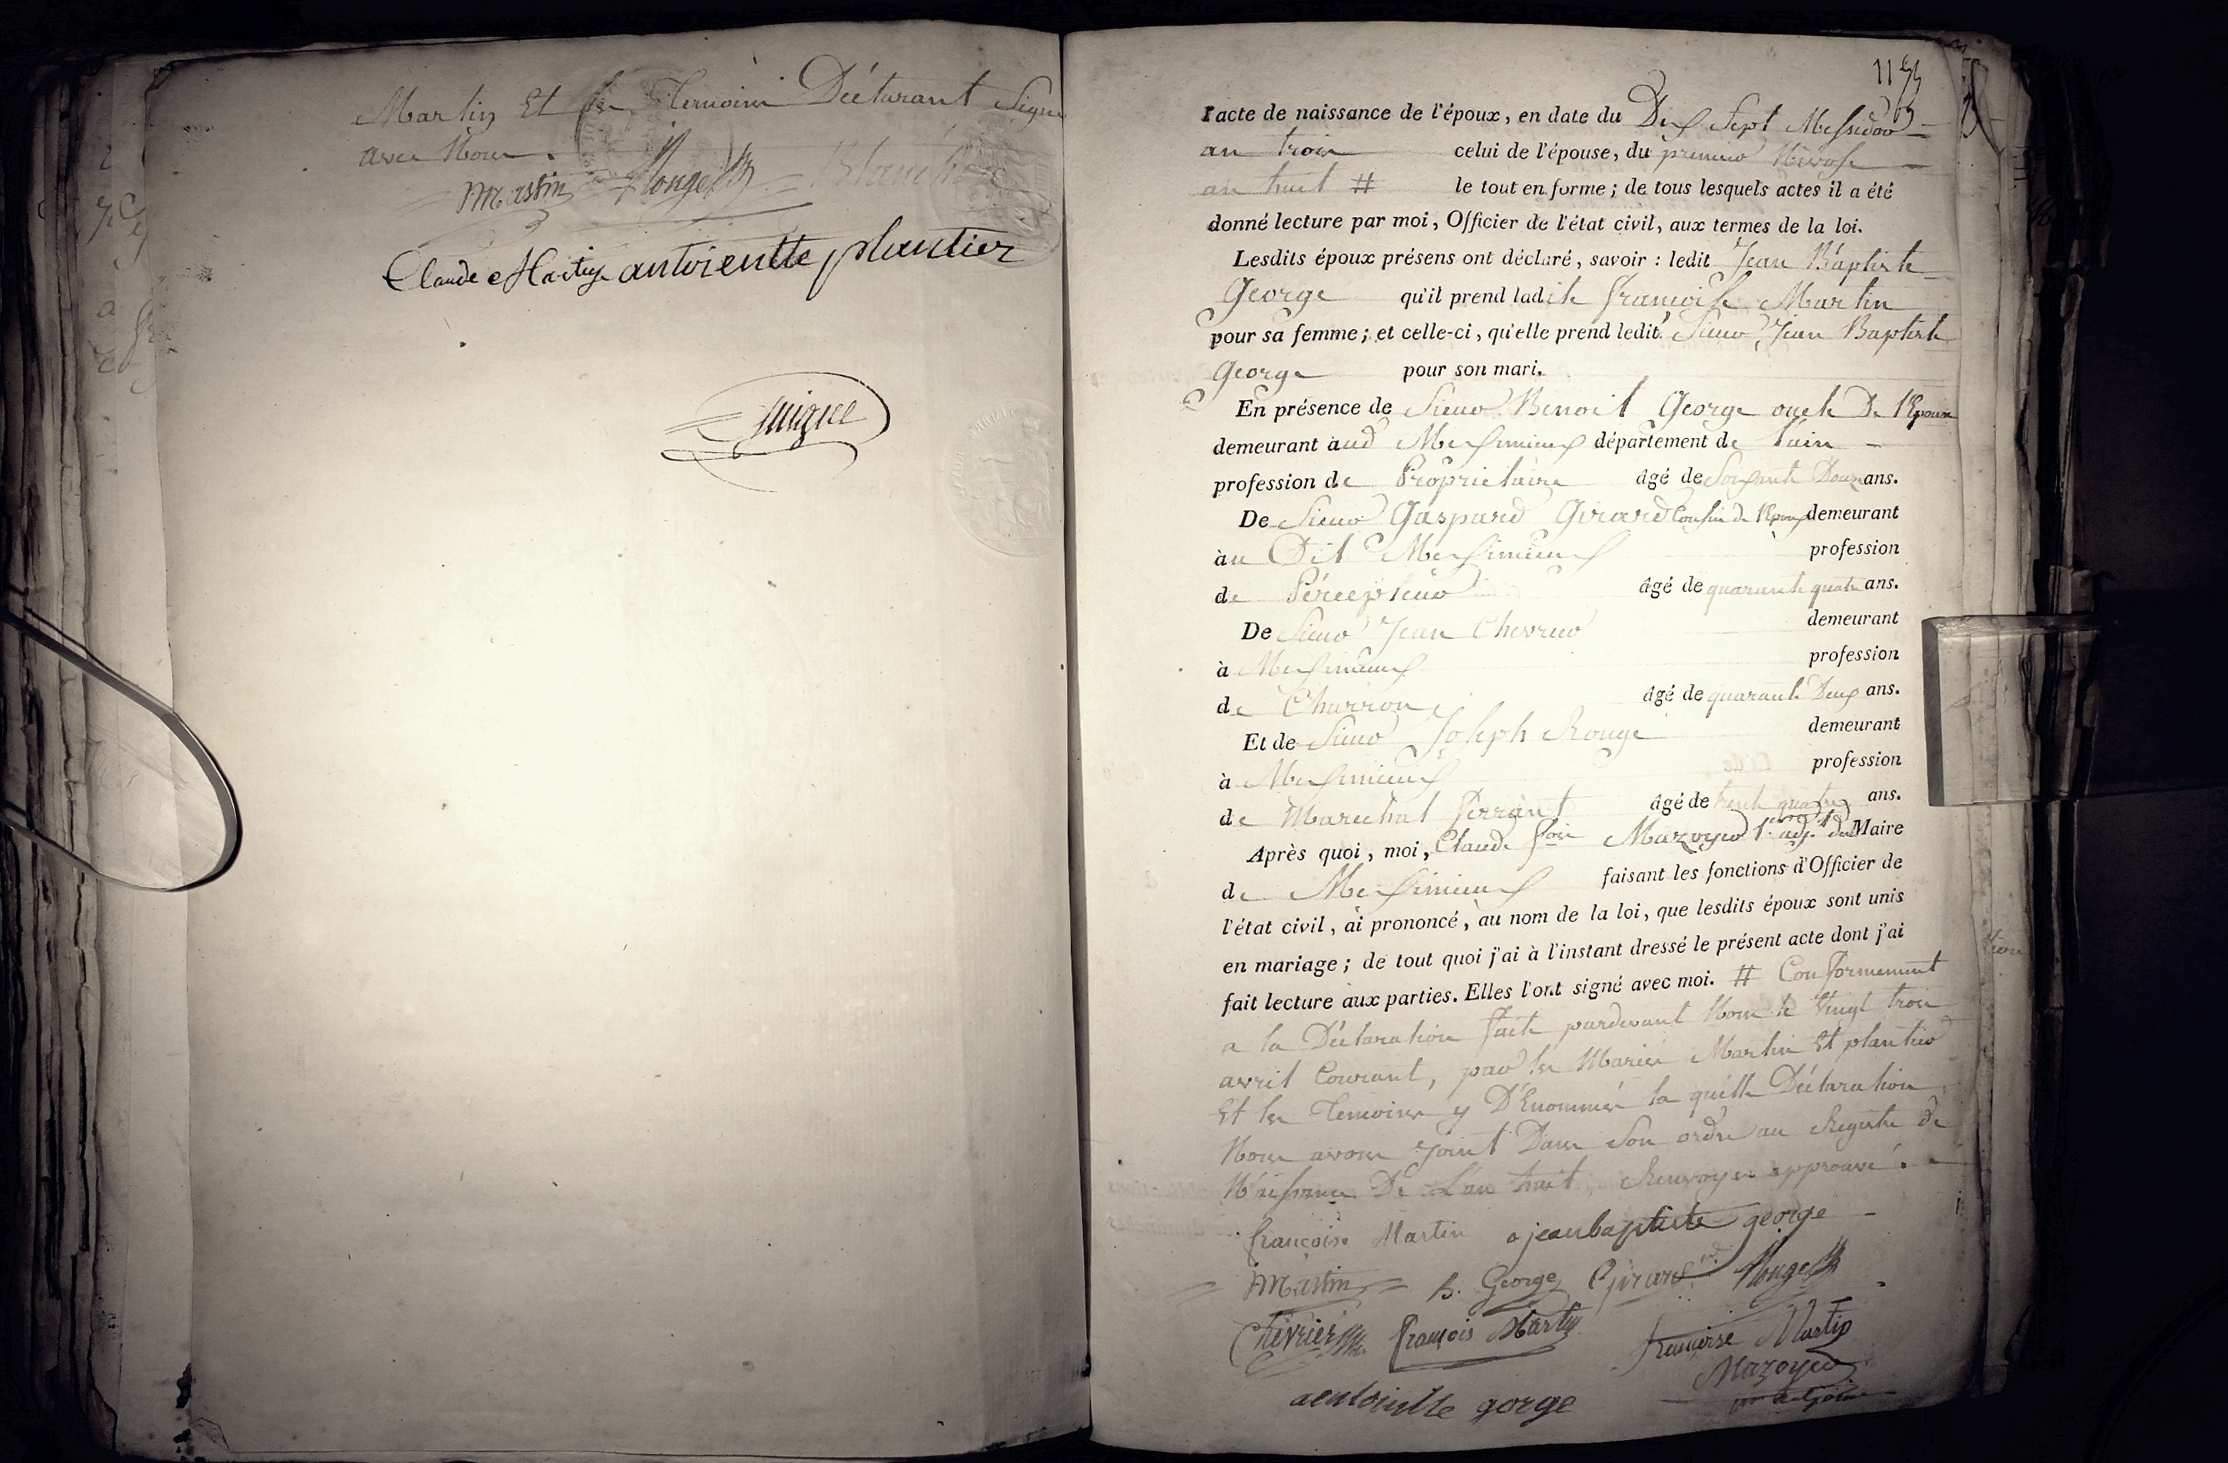 Martin Et les Temoins Déclarant Signé
avec Nous.
Martin Rouge Blanc
Claude Martin antoinette plantier
Guigue
l'acte de naissance de l'époux, en date du Dix Sept Messidor
an trois celui de l'épouse, du premier Nivose
an huit # le tout en forme ; de tous lesquels actes il a été
donné lecture par moi, Officier de l'état civil, aux termes de la loi.
Lesdits époux présens ont déclaré, savoir : ledit Jean Baptiste
George qu'il prend ladite francoise Martin
pour sa femme ; et celle-ci, qu'elle prend ledit Sieur Jean Baptiste
George pour son mari.
En présence de Sieur Benoit George oncle De l'Epoux
demeurant aud Messimieux département de l'ain
profession de Proprietaire âgé de Soixante Douze ans.
De Sieur Gaspard Girard Cousin de l'Epoux demeurant
à au Dit Messimieux profession
de Percepteur âgé de quarante quatre ans.
De Sieur Jean Chevrier demeurant
à Messimieux profession
de Charron âgé de quarante Deux ans.
Et de Sieur Joseph Rouge demeurant
à Messimieux profession
de Marechal ferrant âgé de trente quatre ans.
Après quoi, moi, Claude fois Mazoyer 1er adjt du Maire
de Messimieux faisant les fonctions d'Officier de
l'état civil, ai prononcé, au nom de la loi, que lesdits époux sont unis
en mariage ; de tout quoi j'ai à l'instant dressé le présent acte dont j'ai
fait lecture aux parties. Elles l'ont signé avec moi. # Conformement
a la Déclaration faite pardevant Nous le vingt trois
avril Courant, par les Mariés Martin Et plantier
Et les Temoins y Dénommés la quelle Déclaration
Nous avons joint Dans Son ordre au Registre de
Naissance De L'an huit, Renvoyer approuvé.
francoise Martin jeanbaptiste george
Martin b. George Girard Rouge
Chevrier françois Martin francoise Martin
Mazoyer
antoinette gorge